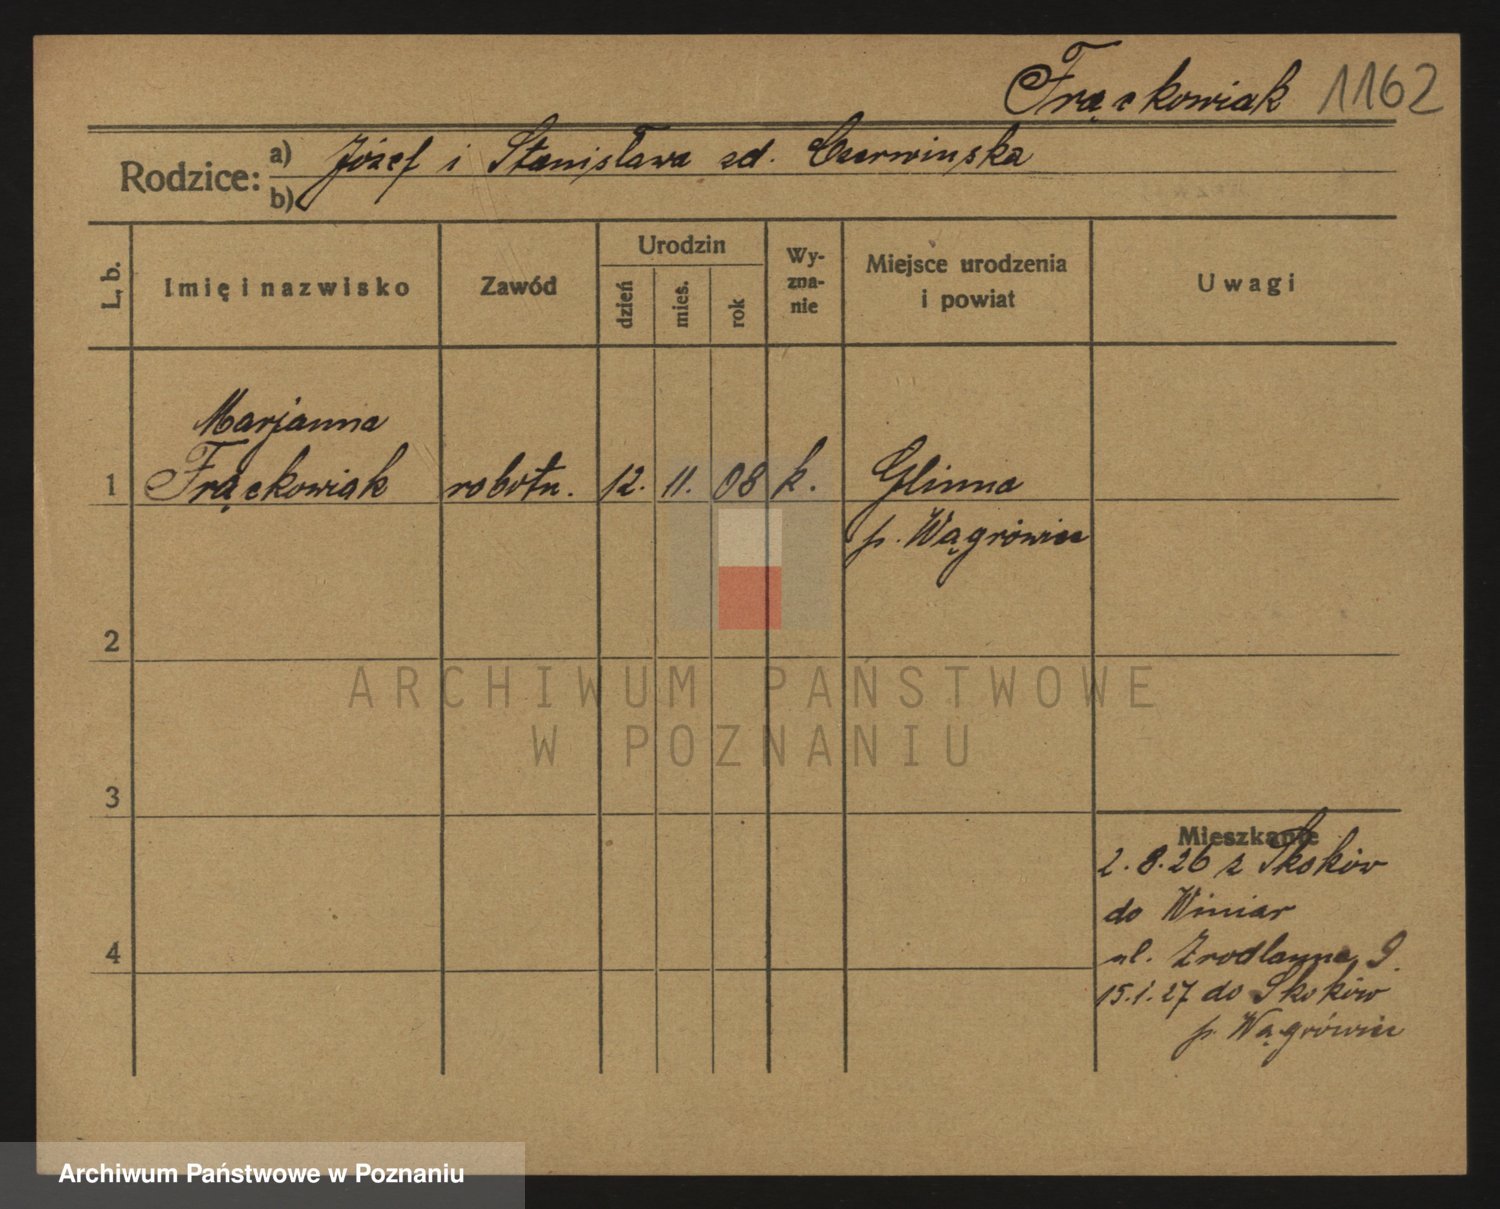 Frąckowiak 1162
Rodzice: a) Józef i Stanisława zd. Czerwińska
b)
L. b.
Imię i nazwisko
Zawód
Urodzin
dzień
mies.
rok
Wy-
zna-
nie
Miejsce urodzenia
i powiat
Uwagi
Marjanna
1 Frąckowiak robotn. 12. 11. 08 k. Glinna
p. Wągrówiec
2
ARCHIWUM PAŃSTWOWE
W POZNANIU
3
Mieszkanie
2.8.26 z Skoków
do Winiar
ul. Zrodlanna 9.
4
15.1.27 do Skoków
p. Wągrówiec
Archiwum Państwowe w Poznaniu